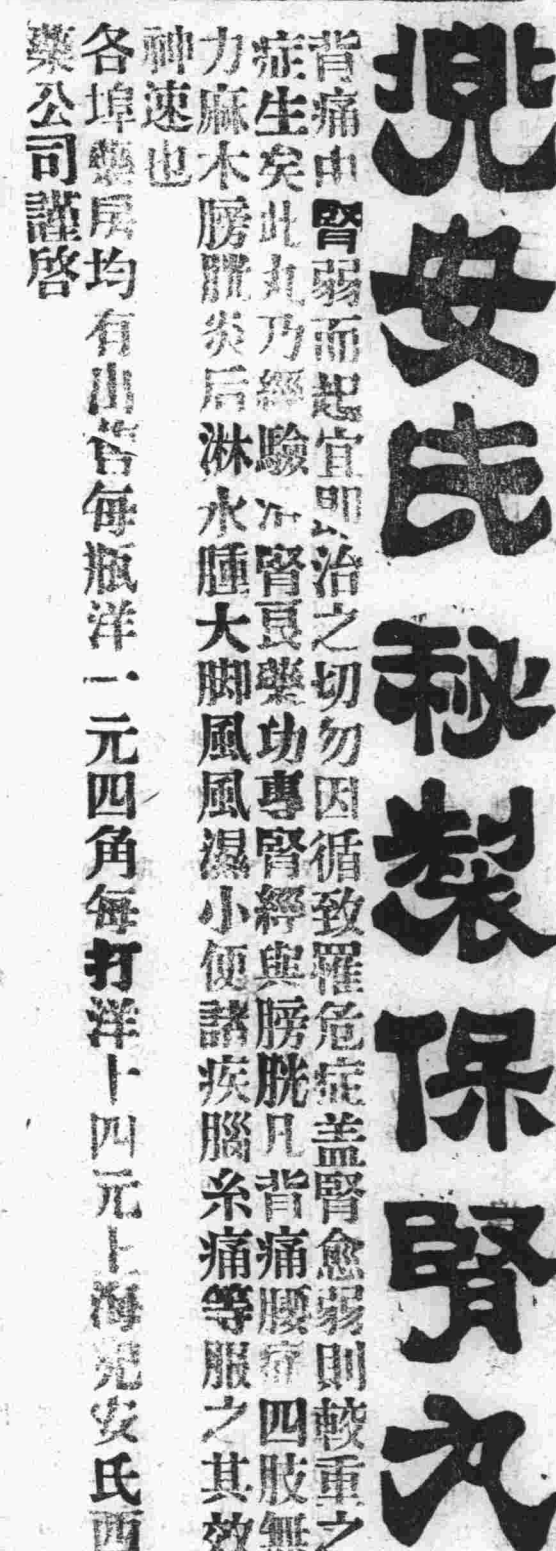 兜安氏秘製保腎丸
背痛由腎弱而起宜即治之切勿因循致罹危症盖腎愈弱則較重之
症生矣此丸乃經驗治腎良藥功專腎經與膀胱凡背痛腰痛四肢無
力麻木膀胱炎后淋水腫大脚風風濕小便諸疾腦糸痛等服之其效
神速也
各埠藥房均有出售每瓶洋一元四角每打洋十四元上海兜安氏西
藥公司謹啓